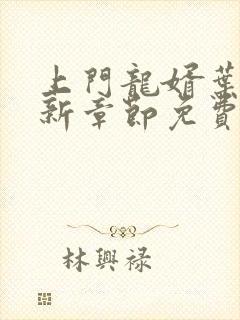 上門龍婿葉
新章節免費
林興祿